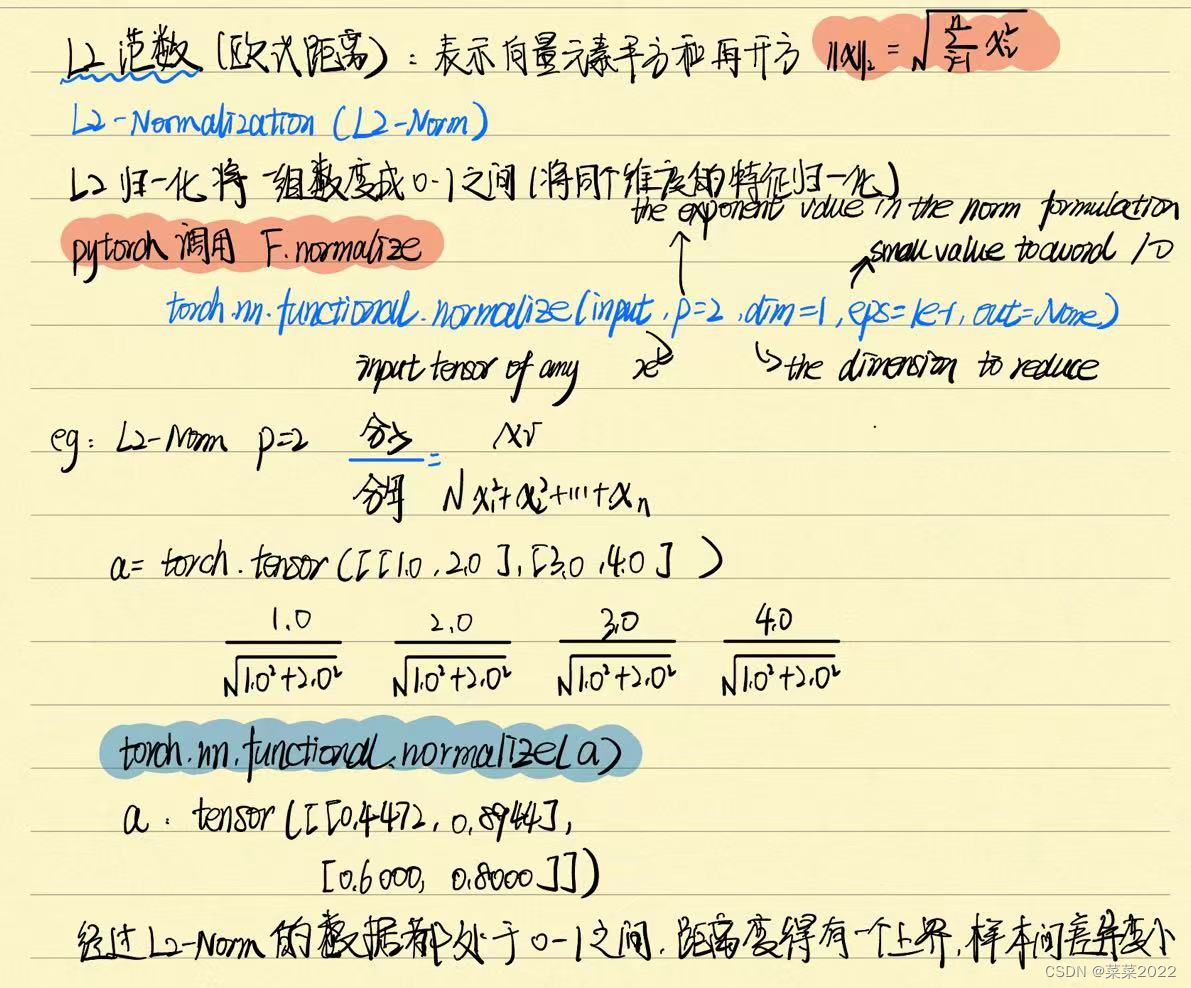 L2 范数 (欧式距离) : 表示向量元素平方和再开方 ||X||₂ = √∑ⁿᵢ₌₁ xᵢ²
L2-Normalization (L2-Norm)
L2 归一化 将 一组数变成 0-1 之间 (将同个维度的特征归一化)
the exponent value in the norm formulation
pytorch 调用 F.normalize
small value to avoid /0
torch.nn.functional.normalize(input, p=2, dim=1, eps=1e-1, out=None)
input tensor of any
the dimension to reduce
eg: L2-Norm p=2 分子/分母 = xᵢ/√x₁²+x₂²+...+xₙ
a= torch.tensor([[1.0, 2.0], [3.0, 4.0] )
1.0 2.0 3.0 4.0
√1.0²+2.0² √1.0²+2.0² √1.0²+2.0² √1.0²+2.0²
torch.nn.functional.normalize(a)
a: tensor([[0.4472, 0.8944],
[0.6000, 0.8000]])
经过 L2-Norm 的数据都处于 0-1 之间, 距离变得有一个上界, 样本间差异变小
CSDN @菜菜2022